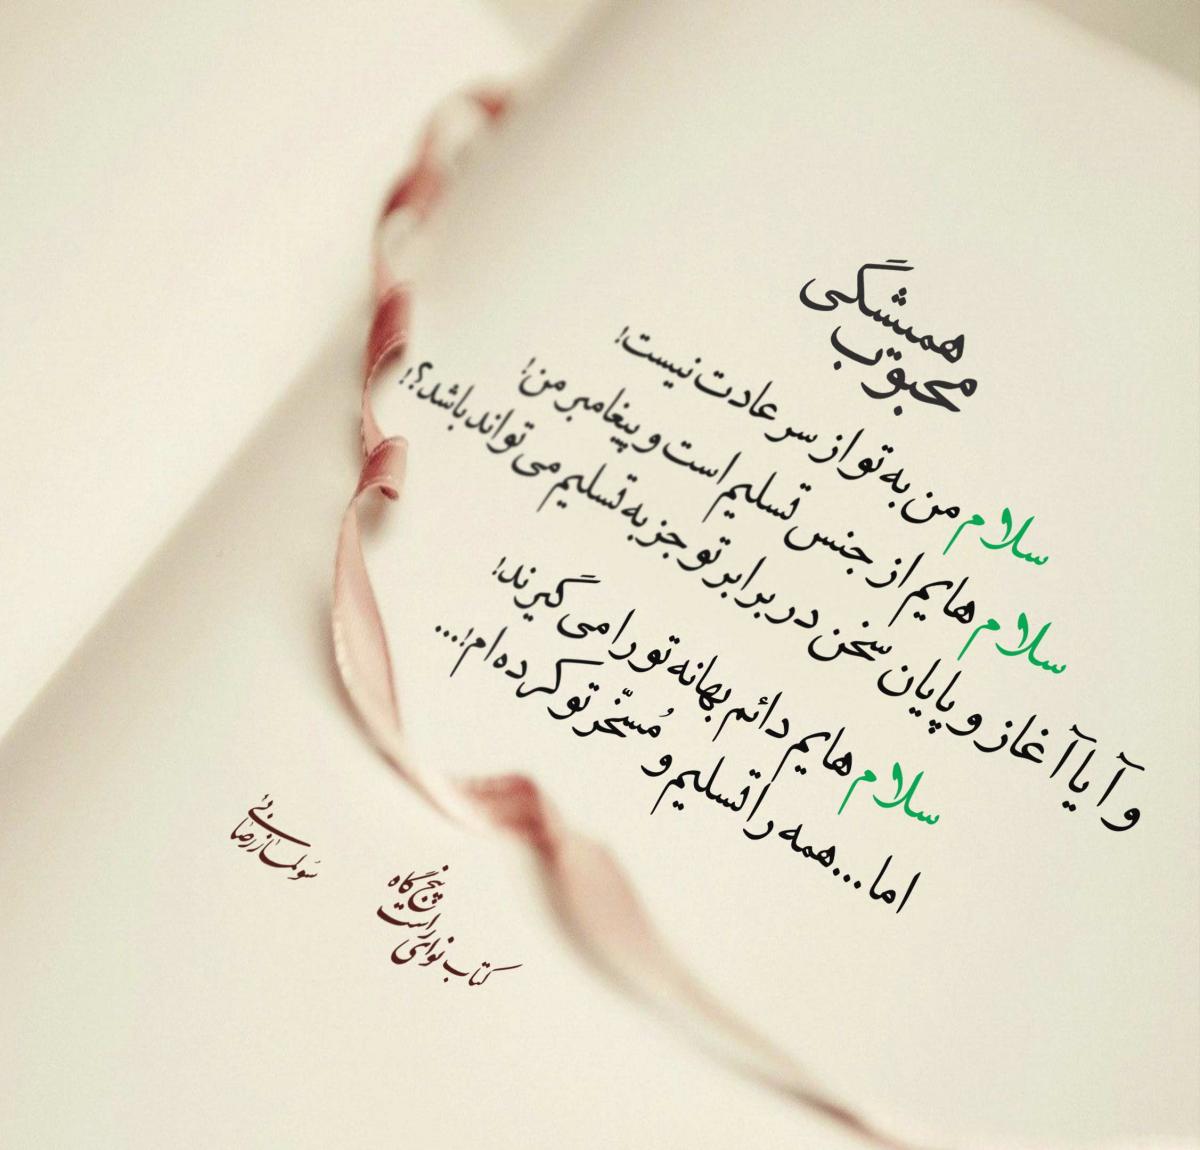 محبوب همیشگی
سلام من به تو از سر عادت نیست!
سلام هایم از جنس تسلیم است و پیغامبر من!
و آیا آغاز و پایان سخن در برابر تو جز به تسلیم می تواند باشد؟!
سلام هایم دائم بهانه تو را می گیرند!
اما...همه را تسلیم و مُسخّر تو کرده ام!...
کتاب نوای
راست
پنج گاه
سولماز رضایی